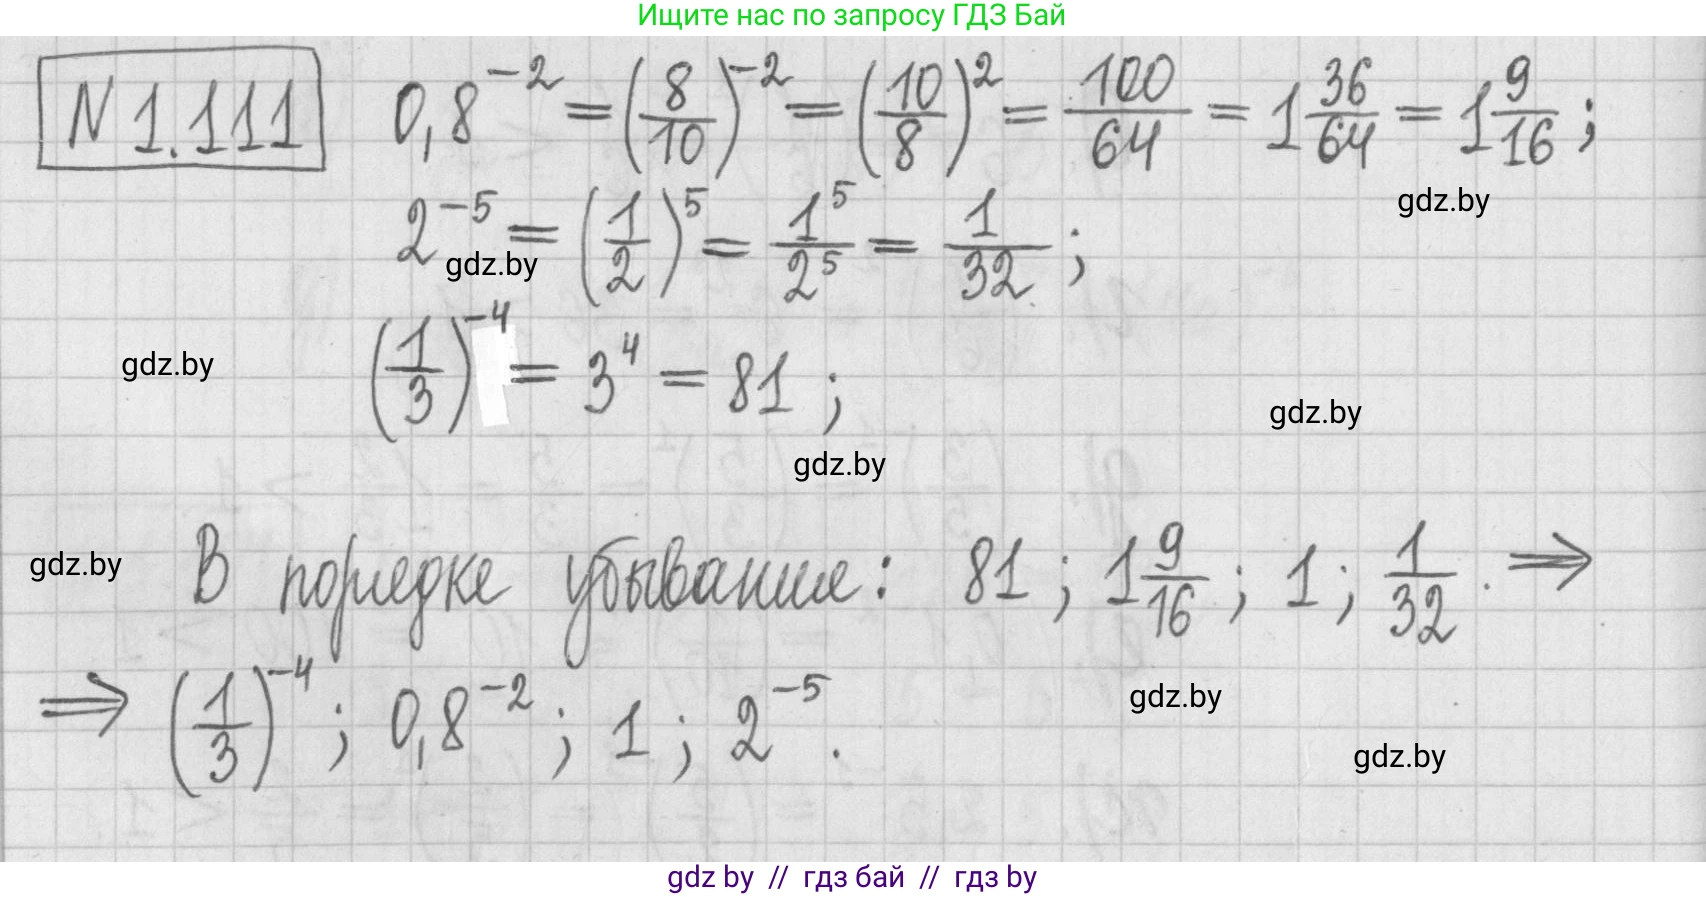 Ищите нас по запросу ГДЗ Бай
N 1.111 0,8^{-2} = (8/10)^{-2} = (10/8)^2 = 100/64 = 1 36/64 = 1 9/16 ;
gdz.by
2^{-5} = (1/2)^5 = 1^5/2^5 = 1/32 ;
gdz.by
(1/3)^{-4} = 3^4 = 81 ;
gdz.by
gdz.by
gdz.by
gdz.by
В порядке убывания: 81 ; 1 9/16 ; 1 ; 1/32 . ⇒
⇒ (1/3)^{-4} ; 0,8^{-2} ; 1 ; 2^{-5} .
gdz.by
gdz.by
gdz by // гдз бай // гдз by